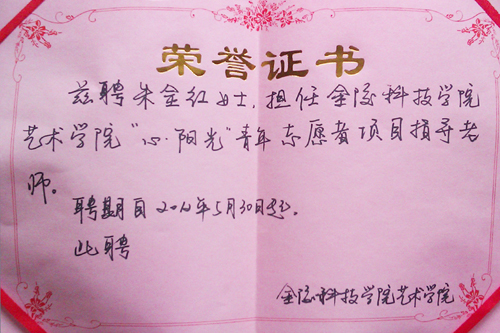 荣誉证书
兹聘朱金红女士，担任金陵科技学院
艺术学院“心·阳光”青年志愿者项目指导老
师。
聘期自2012年5月30日起。
此聘
金陵科技学院艺术学院